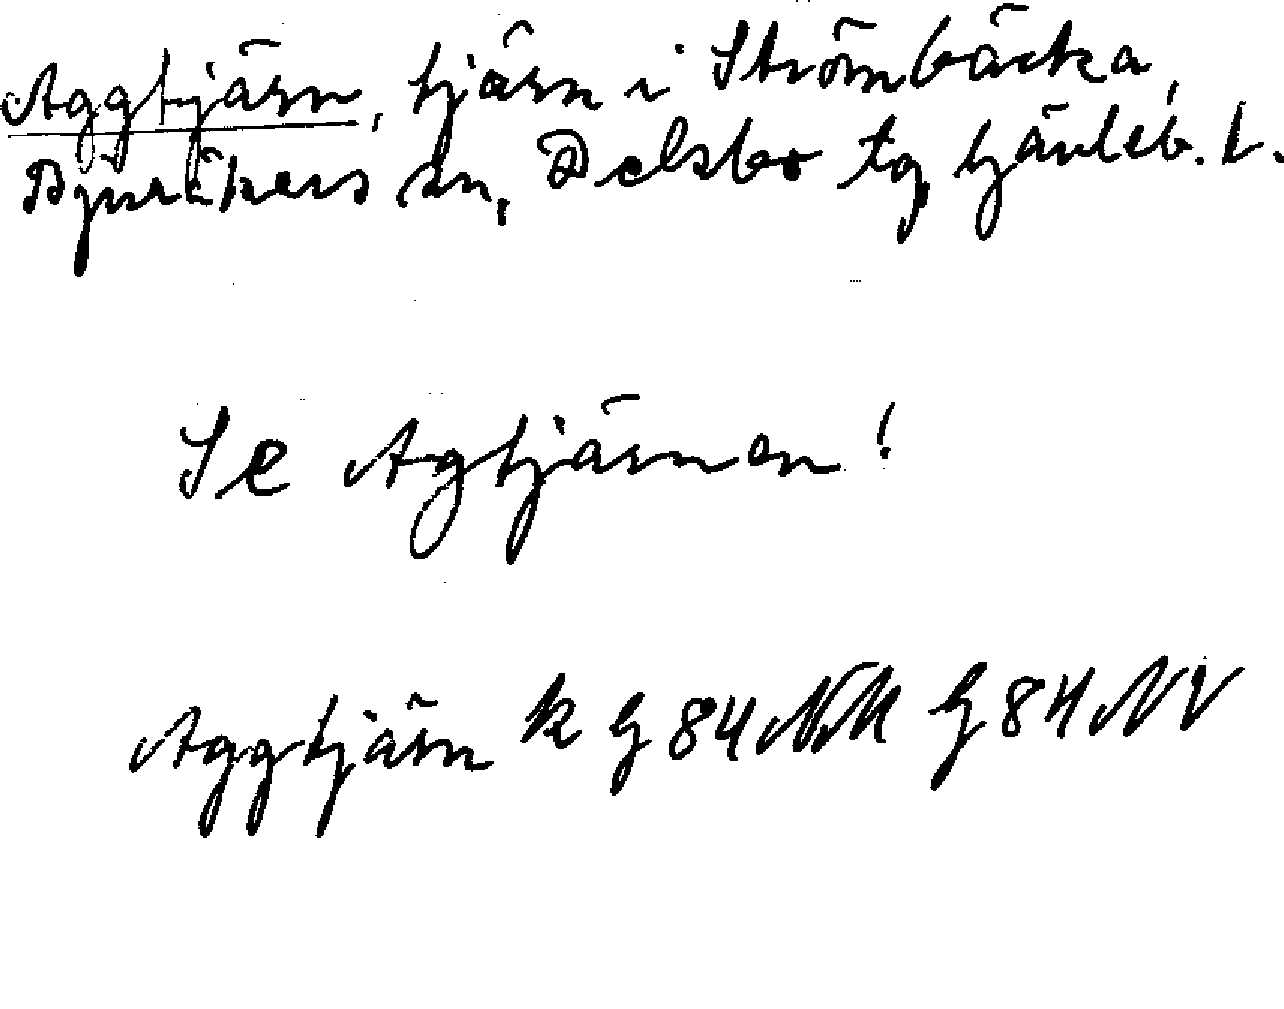 Aggtjärn, tjärn i Strömbäcka,
Bjuråkers sn, Delsbo tg Gävleb. l.
Se Agtjärnen!
Aggtjärn k G 84 G 84 NV